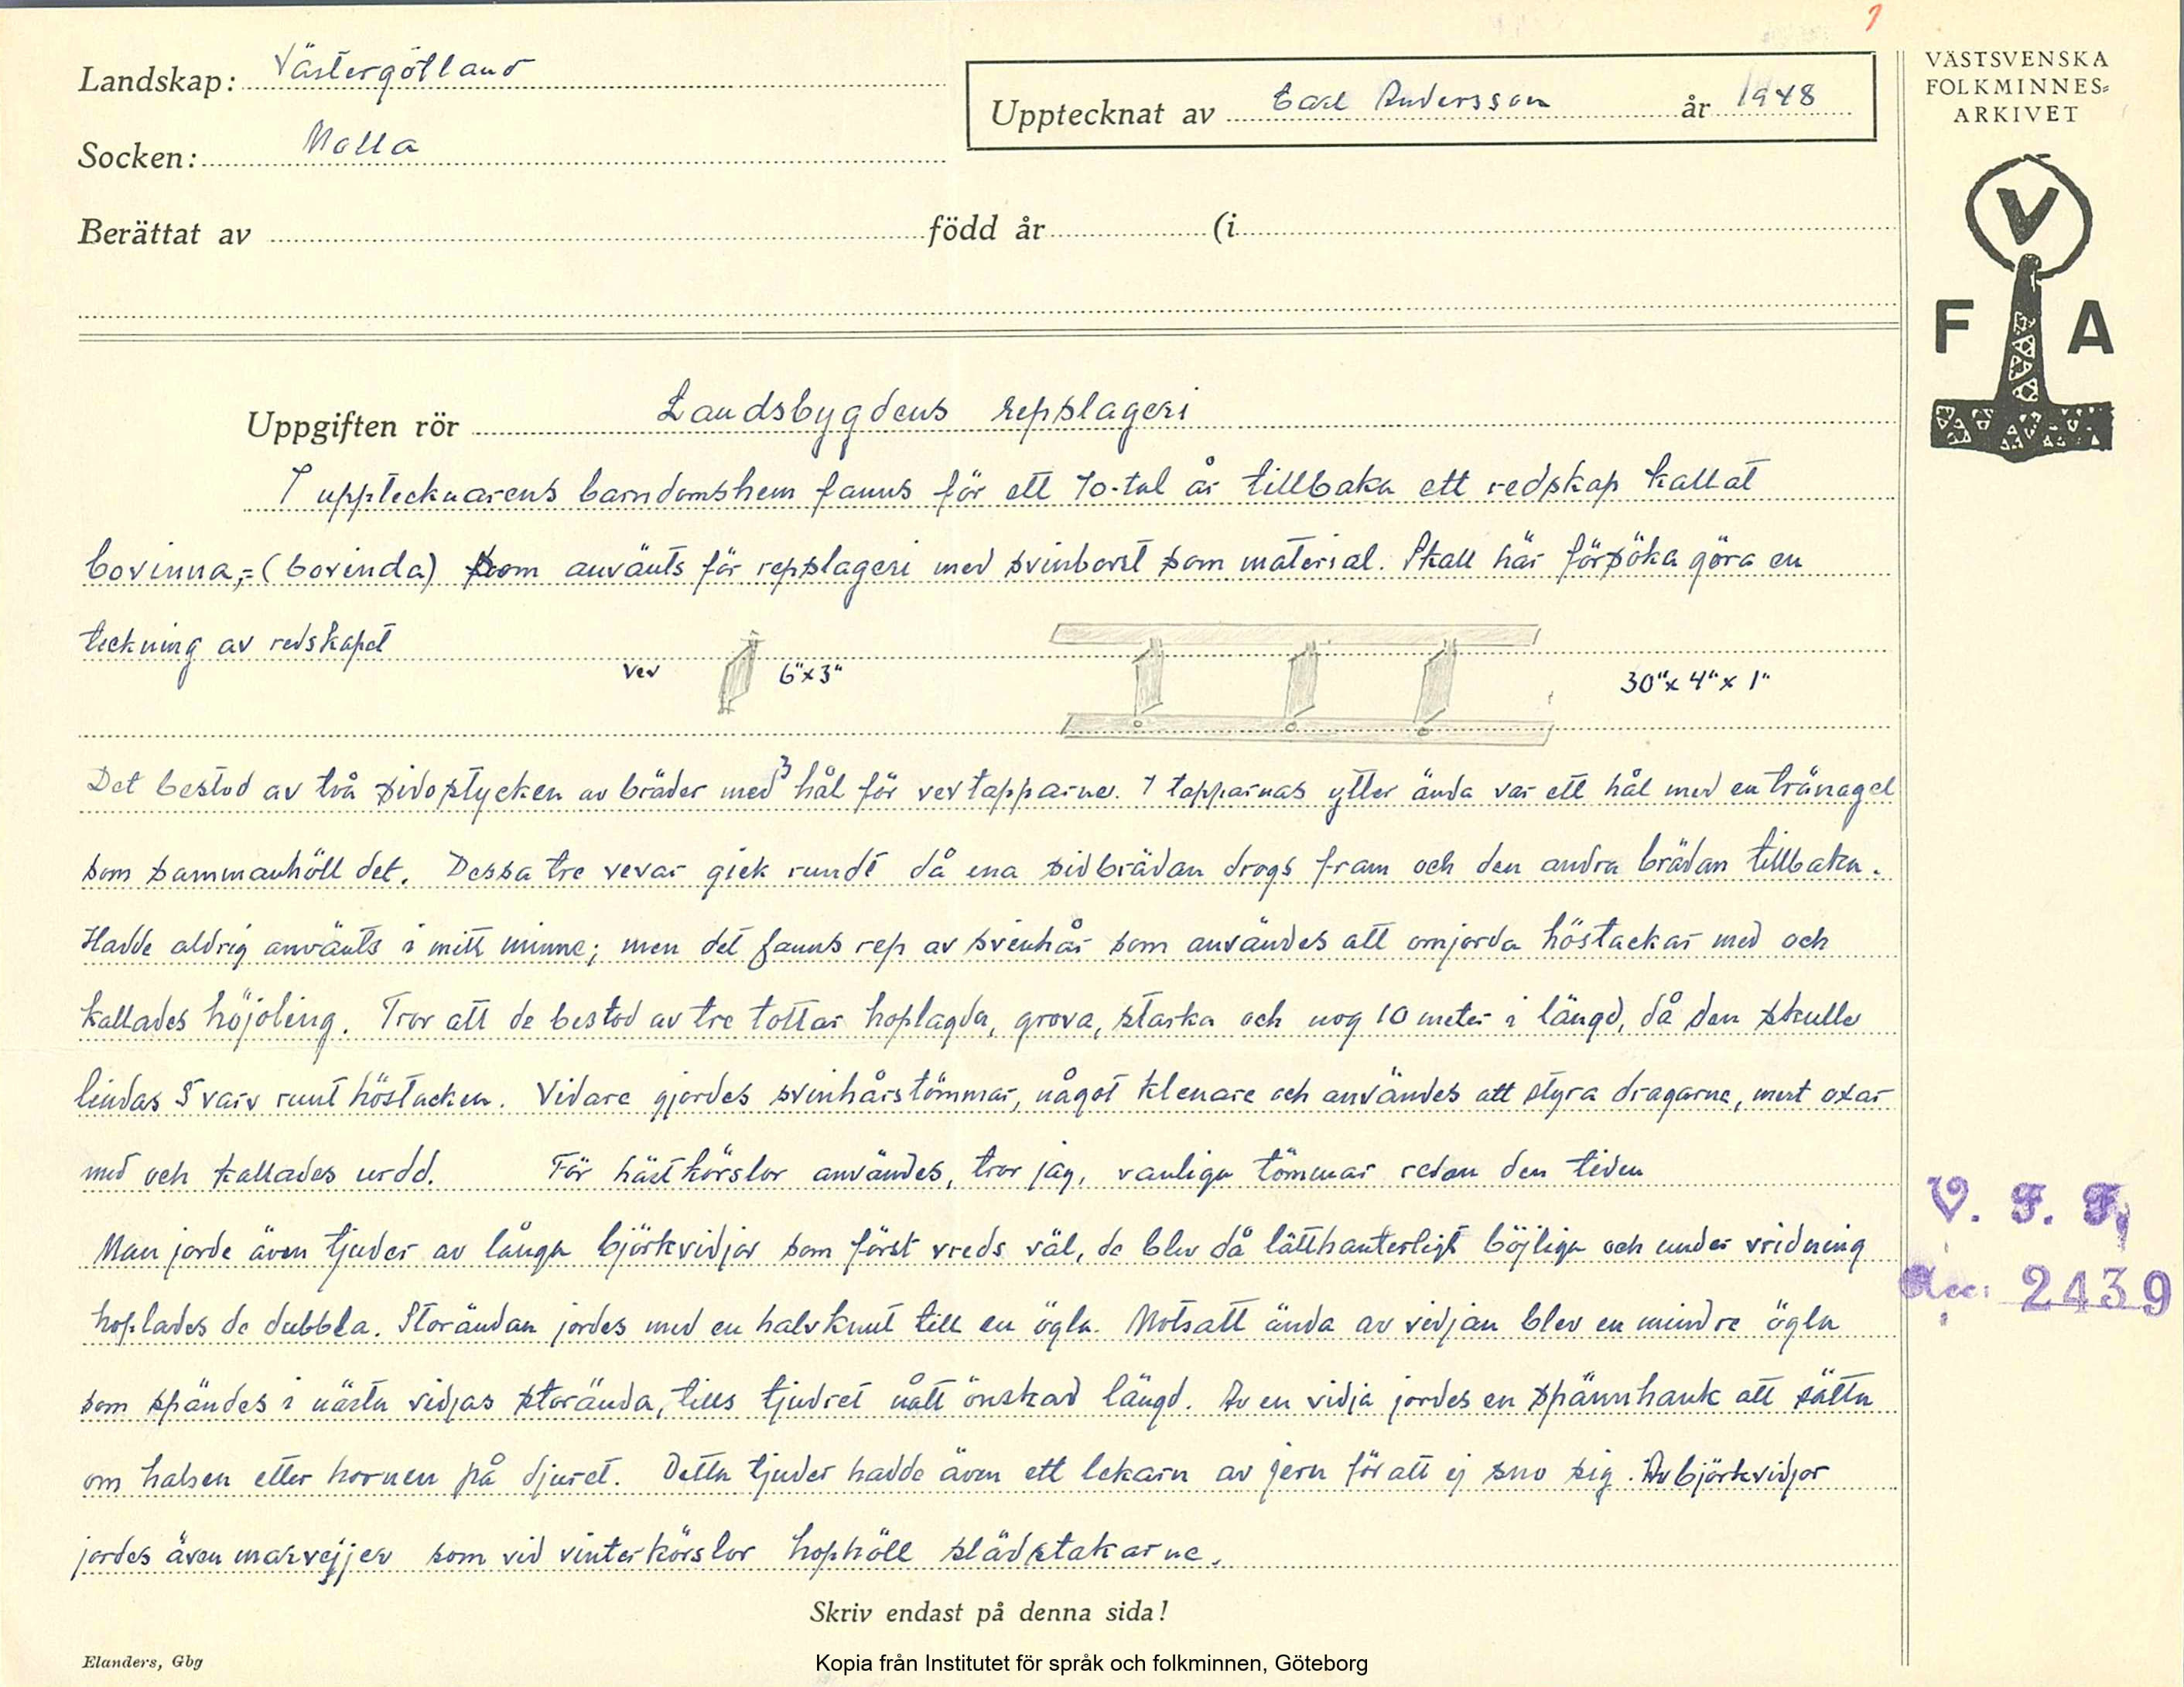 1
Landskap: Västergötland
Socken: Molla
Upptecknat av Carl Andersson år 1948
Berättat av född år (i
VÄSTSVENSKA
FOLKMINNES-
ARKIVET
V
F A
Uppgiften rör Landsbygdens repslageri
I upptecknarens barndomshem fanns för ett 70-tal år tillbaka ett redskap kallat
bovinna,=(bovinda) som använts för repslageri med svinborst som material. Skall här försöka göra en
teckning av redskapet
vev 6"x3" 30"x 4"x 1"
Det bestod av två sidostycken av bräder med 3 hål för vevtapparne. I tapparnas ytter ända var ett hål med en tränagel
som sammanhöll det. Dessa tre vevar gick rundt då ena sidbrädan drogs fram och den andra brädan tillbaka.
Hadde aldrig använts i mitt minne; men det fanns rep av svinhår som användes att omjorda höstackar med och
kallades höjöling. Tror att de bestod av tre tottar hoplagda, grova, starka och nog 10 meter i längd, då den skulle
lindas 5 varv runt höstacken. Vidare gjordes svinhårstömmar, något klenare och användes att styra dragarne, mest oxar
med och kallades urdd. För hästkörslor användes, tror jag, vanliga tömmar redan den tiden
Man jorde även tjuder av långa björkvidjor som först vreds väl, de blev då lätthanterligt böjliga och under vridning
hoplades de dubbla. Storändan jordes med en halvknut till en ögla. Motsatt ända av vidjan blev en mindre ögla
som spändes i nästa vidjas storända, tills tjudret nått önskad längd. Av en vidja jordes en spännhank att sätta
om halsen eller hornen på djuret. Detta tjuder hadde även ett lekarn av jern för att ej sno sig. Av björkvidjor
jordes även marvejjer som vid vinterkörslor hophöll slädstakarne.
V. F. F.
Acc: 2439
Skriv endast på denna sida!
Elanders, Gbg
Kopia från Institutet för språk och folkminnen, Göteborg